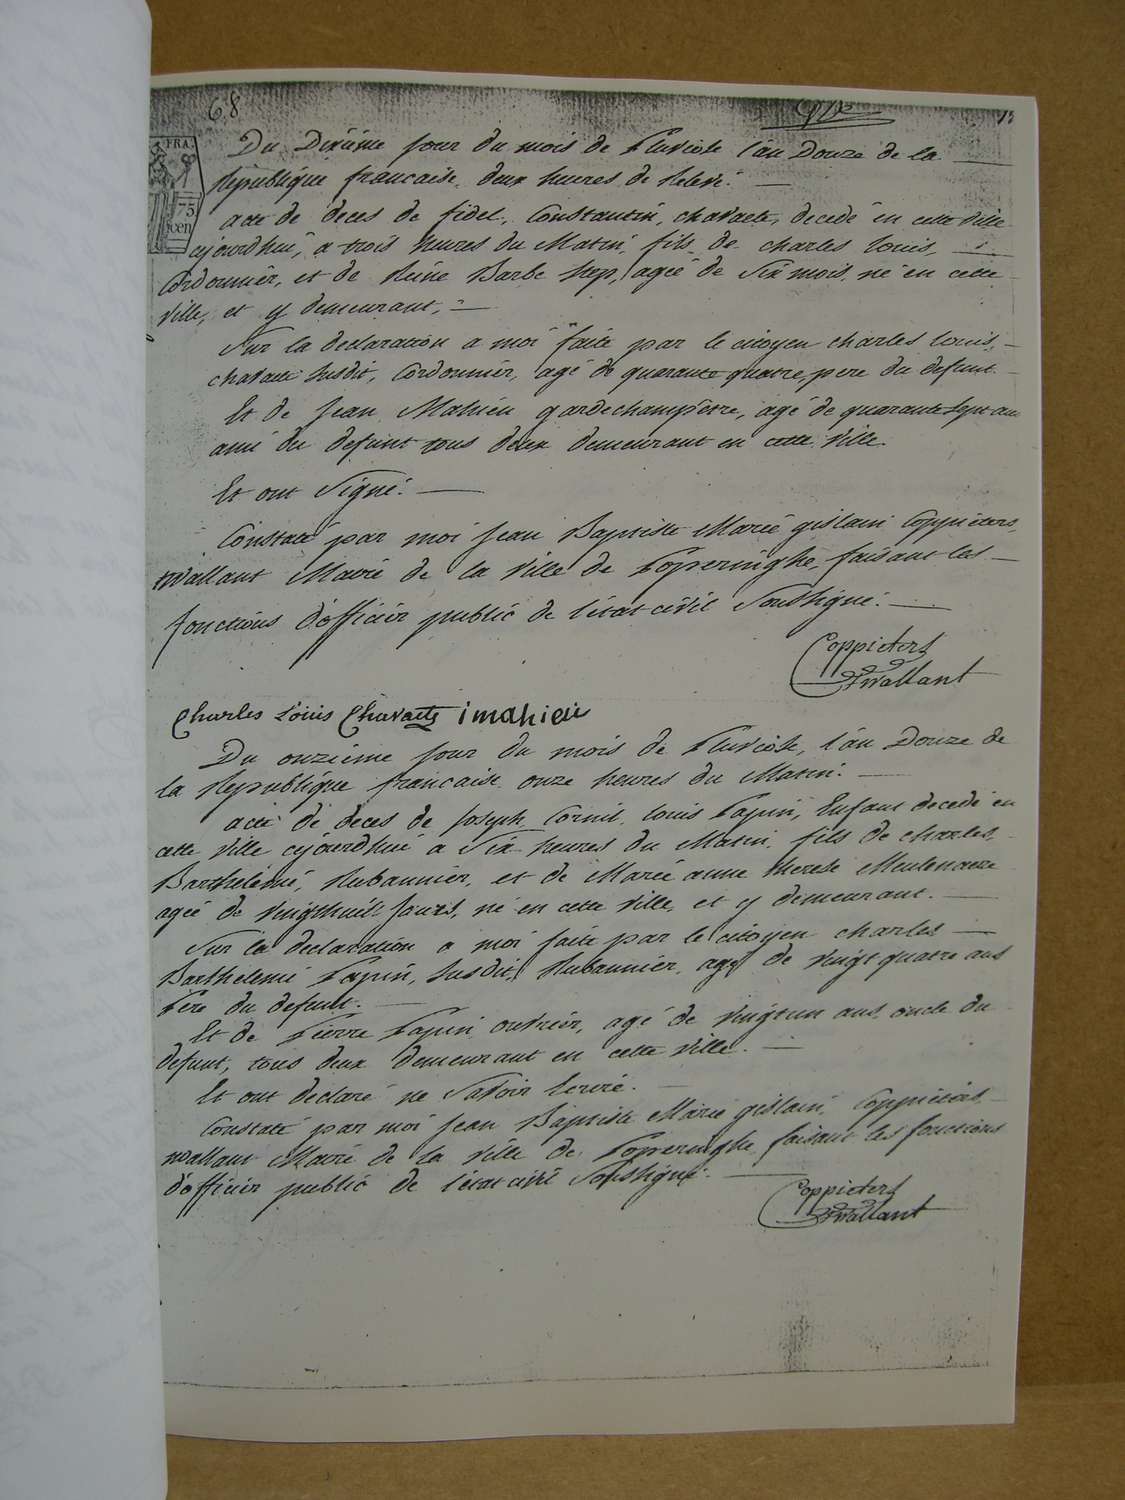 68
FRA.
75
cen
Du Dixiéme jour du mois de Pluviose l'an Douze de la
République francaise, deux heures de Relevé.
acte de deces de fidel, Constantin, chavaete, decedé en cette ville
ajourdhui, a trois heures du Matin, fils de charles louis,
Cordonnier, et de Reine Barbe Hep, agée de Six mois, né en cette
ville, et y demeurant,
Sur la declaration a moi faite par le citoyen charles louis,
chavaete susdit, Cordonnier, agé de quarante quatre, pere du defunt
Et de Jean Mahieu gardechampêtre, agé de quarante sept ans
ami du defunt tous deux demeurant en cette ville.
Et ont Signé.
Constaté par moi Jean Baptiste Marie gislain Coppieters,
wallant Maire de la ville de Poperinghe, faisant les
fonctions d'officier public de l'état civil Soussigné.
Coppieters
wallant
Charles Louis Chavaete imahieu
Du onziéme jour du mois de Pluviose, l'an Douze de
la République francaise onze heures du Matin.
acte de deces de Joseph Cornil louis Papin, Enfant decedé en
cette ville ajourdhui a Six heures du Matin, fils de charles
Barthelemé, Rubannier, et de Marie anne therese Meulenaere
agée de vingthuit Jours, né en cette ville, et y demeurant.
Sur la declaration a moi faite par le citoyen charles
Barthelemi Papin, susdit, Rubannier, agé de vingt quatre ans
Pere du defunt.
Et de Pierre Papin ouvrier, agé de vingtun ans, oncle du
defunt, tous deux demeurant en cette ville.
Et ont declaré ne Savoir Ecrire.
Constaté par moi Jean Baptiste Marie gislain, Coppieters
wallant Maire de la ville de Poperinghe faisant les fonctions
d'officier public de l'état civil Soussigné.
Coppieters
wallant